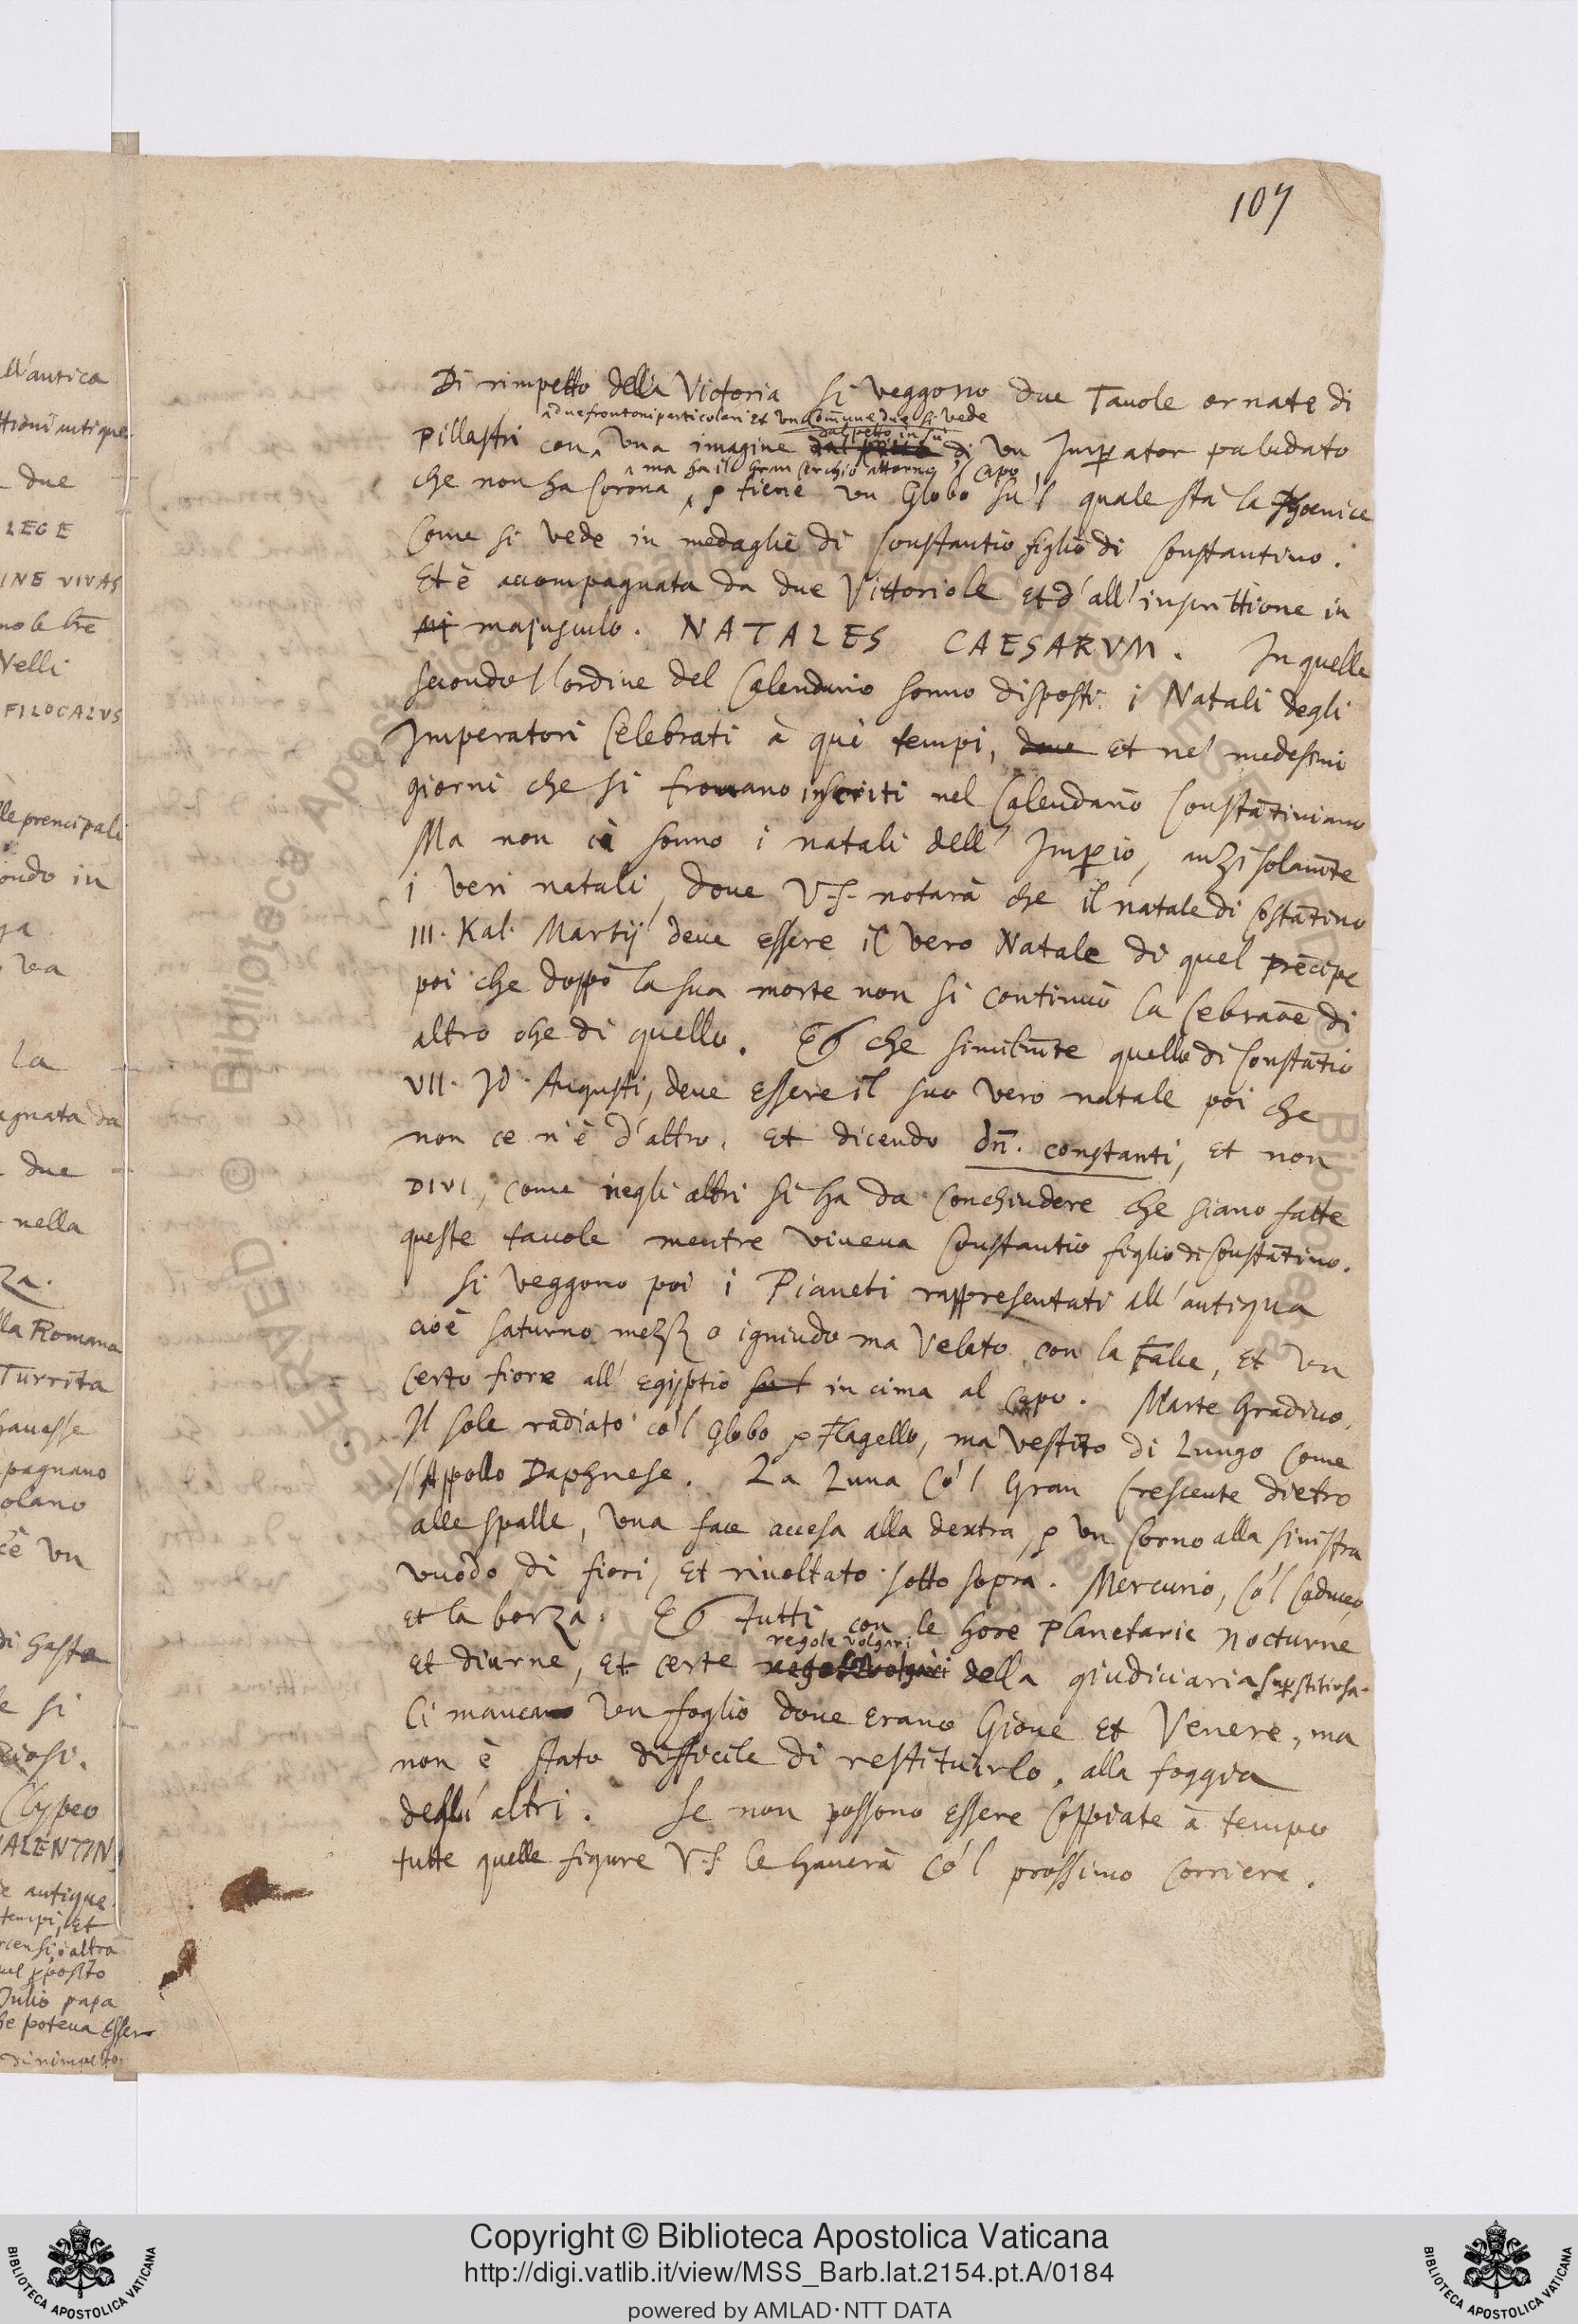 107
Di rimpetto della Victoria si veggono due Tavole ornate di
due frontoni particolari et un commune due si vede
dal petto in su
pillastri con una imagine dal petto di un Imperator paludato
ma ha il gran cerchio attorno il capo
che non ha corona, et tiene un Globo su'l quale sta la phoenice
Come si vede in medaglie di Constantio figlio di Constantino.
Et è accompagnata da due Vittoriole et d'all'inscrittione in
majusculo. NATALES CAESARVM. In quelle
secondo l'ordine del Calendario sonno disposti i Natali degli
Imperatori Celebrati à què tempi, dove et nel medesimi
giorni che si trovano inscriti nel Calendario Constātiniano
Ma non ci sonno i natali dell' Imperio, anzi solamte
i veri natali, dove V.S. notarà che il natale di Costātino
III. Kal. Martij deve essere il vero Natale di quel prēcipe
poi che doppò la sua morte non si continuò la Cebraōe di
altro che di quello. Et che similmte quello di Constātio
VII. Id. Augusti, deve essere il suo vero natale poi che
non ce n'è d'altro. Et dicendo dn̄. constanti, et non
DIVI, come negli altri si ha da conchiudere che siano fatte
queste tavole mentre viveva Constantio figlio di Constātino.
Si veggono poi i Pianeti rappresentati all'antiqua
cioè saturno mezzo igniudo ma velato con la falce, et un
certo fiore all' Egijptio sul in cima al capo. Marte Gradivo.
Il sole radiato co'l Globo et flagello, ma vestito di Lungo come
l'Appollo Daphnese. La Luna co'l Gran Crescente dietro
alle spalle, una face accesa alla dextra, et un Corno alla sinistra
vuodo di fiori, et rivoltato sotto sopra. Mercurio, co'l Caduceo,
et la borza. Et tutti con le hore Planetarie nocturne
regole volgari
et diurne, et certe regole volgari della giudiciaria superstitiosa.
Ci manca un foglio dove erano Giove et Venere, ma
non è stato difficile di restituirlo, alla foggia
degli altri. Se non possono essere coppiate à tempo
tutte quelle figure V.S. le haverà co'l prossimo corriere.
ll'antica
due
LEGE
INE VIVAS
Velli
FILOCALVS
lle prencipali
ondo in
va
La
agnata da
due
nella
za.
lla Romana
Turrita
havesse
pagnano
olano
c'è un
di hasta
si
Clypeo
VALENTIN
antique
tempi, et
altra
pposito
Julio papa
he poteva esser
di rimpetto
© Biblioteca Apostolica Vaticana
Copyright © Biblioteca Apostolica Vaticana
http://digi.vatlib.it/view/MSS_Barb.lat.2154.pt.A/0184
powered by AMLAD·NTT DATA
BIBLIOTECA APOSTOLICA VATICANA
BIBLIOTECA APOSTOLICA VATICANA